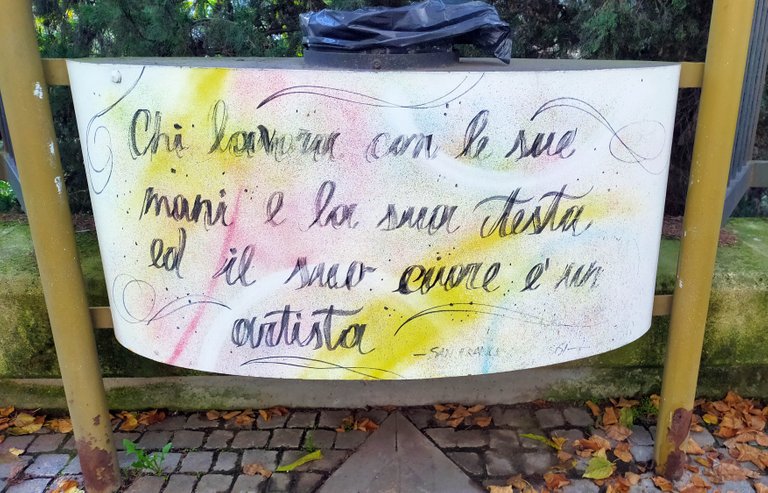 Chi lavora con le sue
mani e la sua testa
ed il suo cuore e' un
artista
— SAN